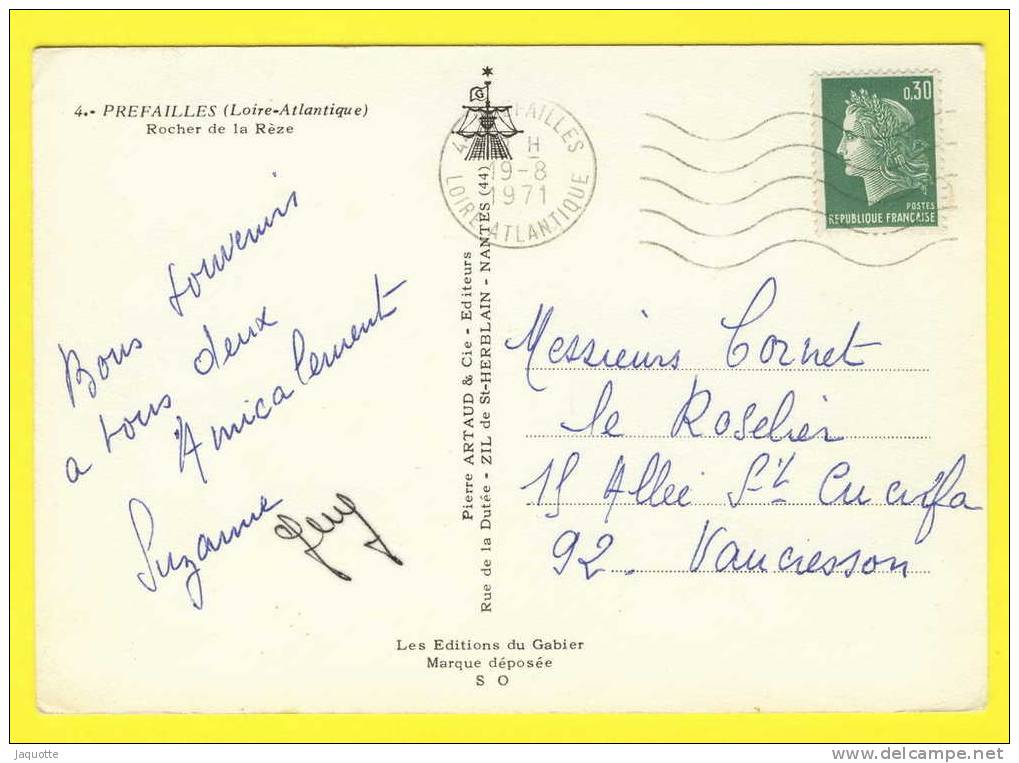 4.- PREFAILLES (Loire-Atlantique)
Rocher de la Rèze
Bons souvenirs
a tous deux
Amicalement
Suzanne
Pierre ARTAUD & Cie - Editeurs
Rue de la Dutée - ZIL de St-HERBLAIN - NANTES (44)
Les Editions du Gabier
Marque déposée
S O
H
19-8
1971
LOIRE-ATLANTIQUE
0,30
POSTES
REPUBLIQUE FRANÇAISE
Messieurs Cornet
le Roselier
15 Allée St Cucufa
92. Vaucresson
Jaquotte
www.delcampe.net